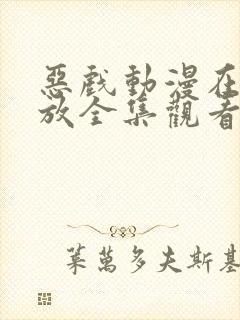 惡戲動漫在
放全集觀看
葉萬多夫斯基